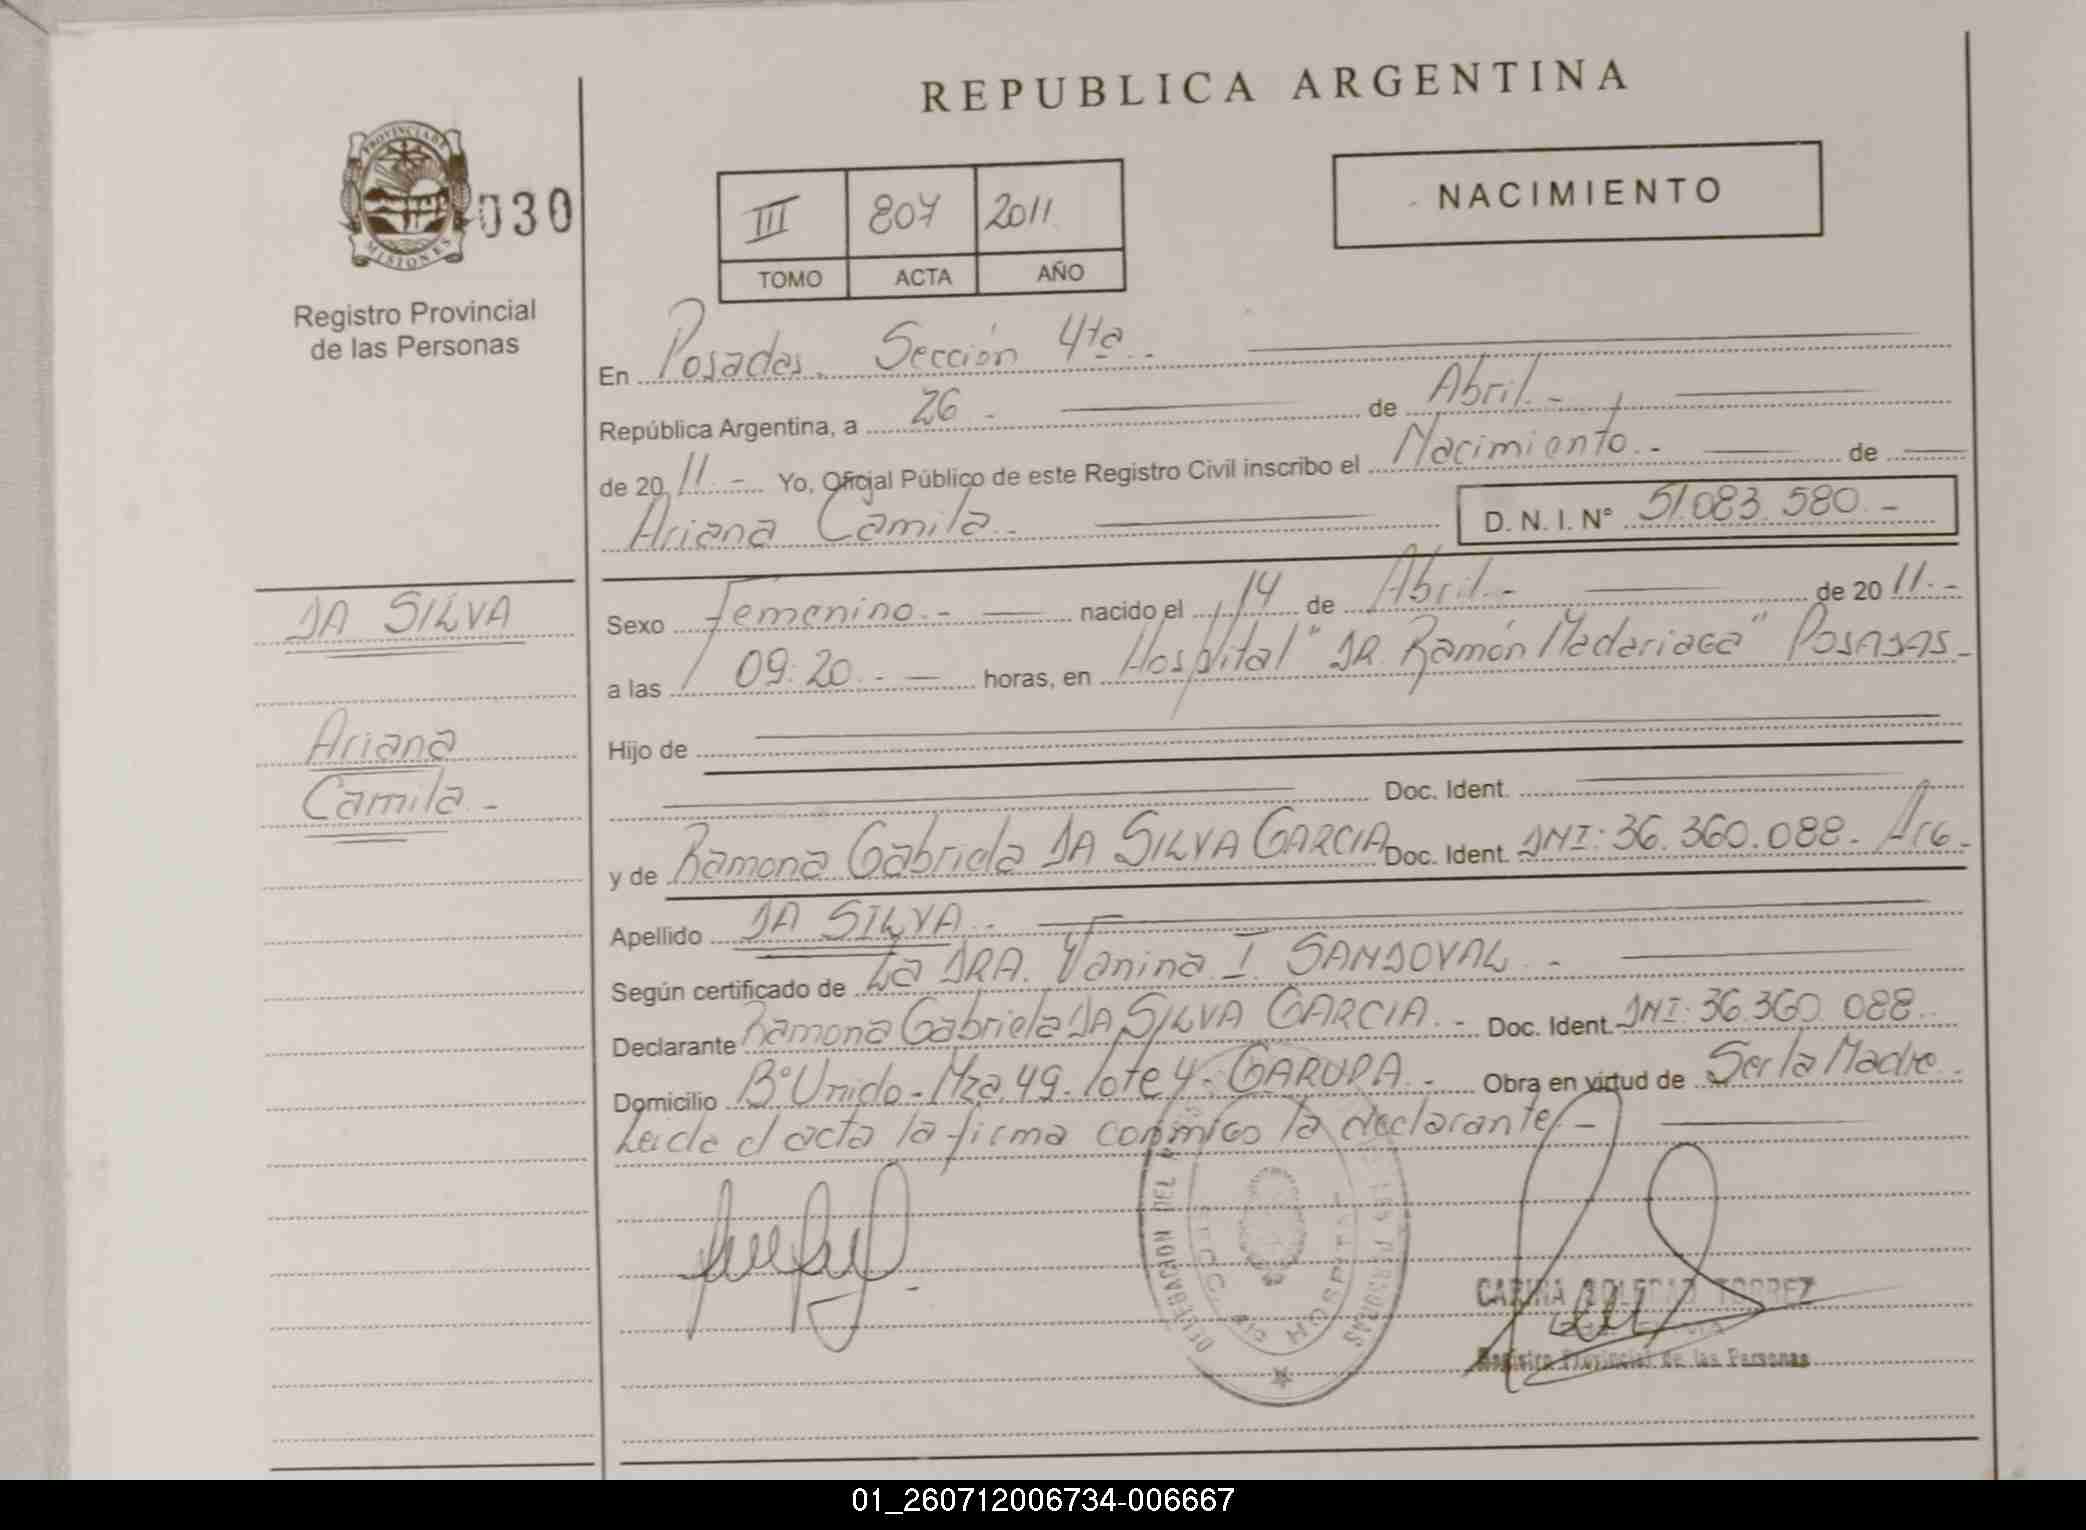 REPUBLICA ARGENTINA
PROVINCIA DE
MISIONES
030
Registro Provincial
de las Personas
III 807 2011
TOMO ACTA AÑO
NACIMIENTO
En Posadas. Sección 4ta.
República Argentina, a 26 - de Abril. -
de 2011. - Yo, Oficial Público de este Registro Civil inscribo el Nacimiento. - de
Ariana Camila. - D. N. I. Nº 51.083.580. -
DA SILVA
Ariana
Camila. -
Sexo Femenino. - nacido el 14 de Abril. - de 2011. -
a las 09:20. - horas, en Hospital "DR. Ramón Madariaga" POSADAS -
Hijo de
Doc. Ident.
y de Ramona Gabriela DA SILVA GARCIA Doc. Ident. DNI: 36.360.088. Arg. -
Apellido DA SILVA. -
Según certificado de La DRA. Vanina I. SANDOVAL. -
Declarante Ramona Gabriela DA SILVA GARCIA. - Doc. Ident. DNI: 36.360.088.
Domicilio Bº Unido - Mza. 49 - lote 4 - GARUPA. - Obra en virtud de Ser la Madre.
Leida el acta la firma conmigo la declarante. -
DELEGACION DEL
PERSONAS
HOSPITAL
CARINA SOLEDAD TORREZ
Registro Provincial de las Personas
01_260712006734-006667